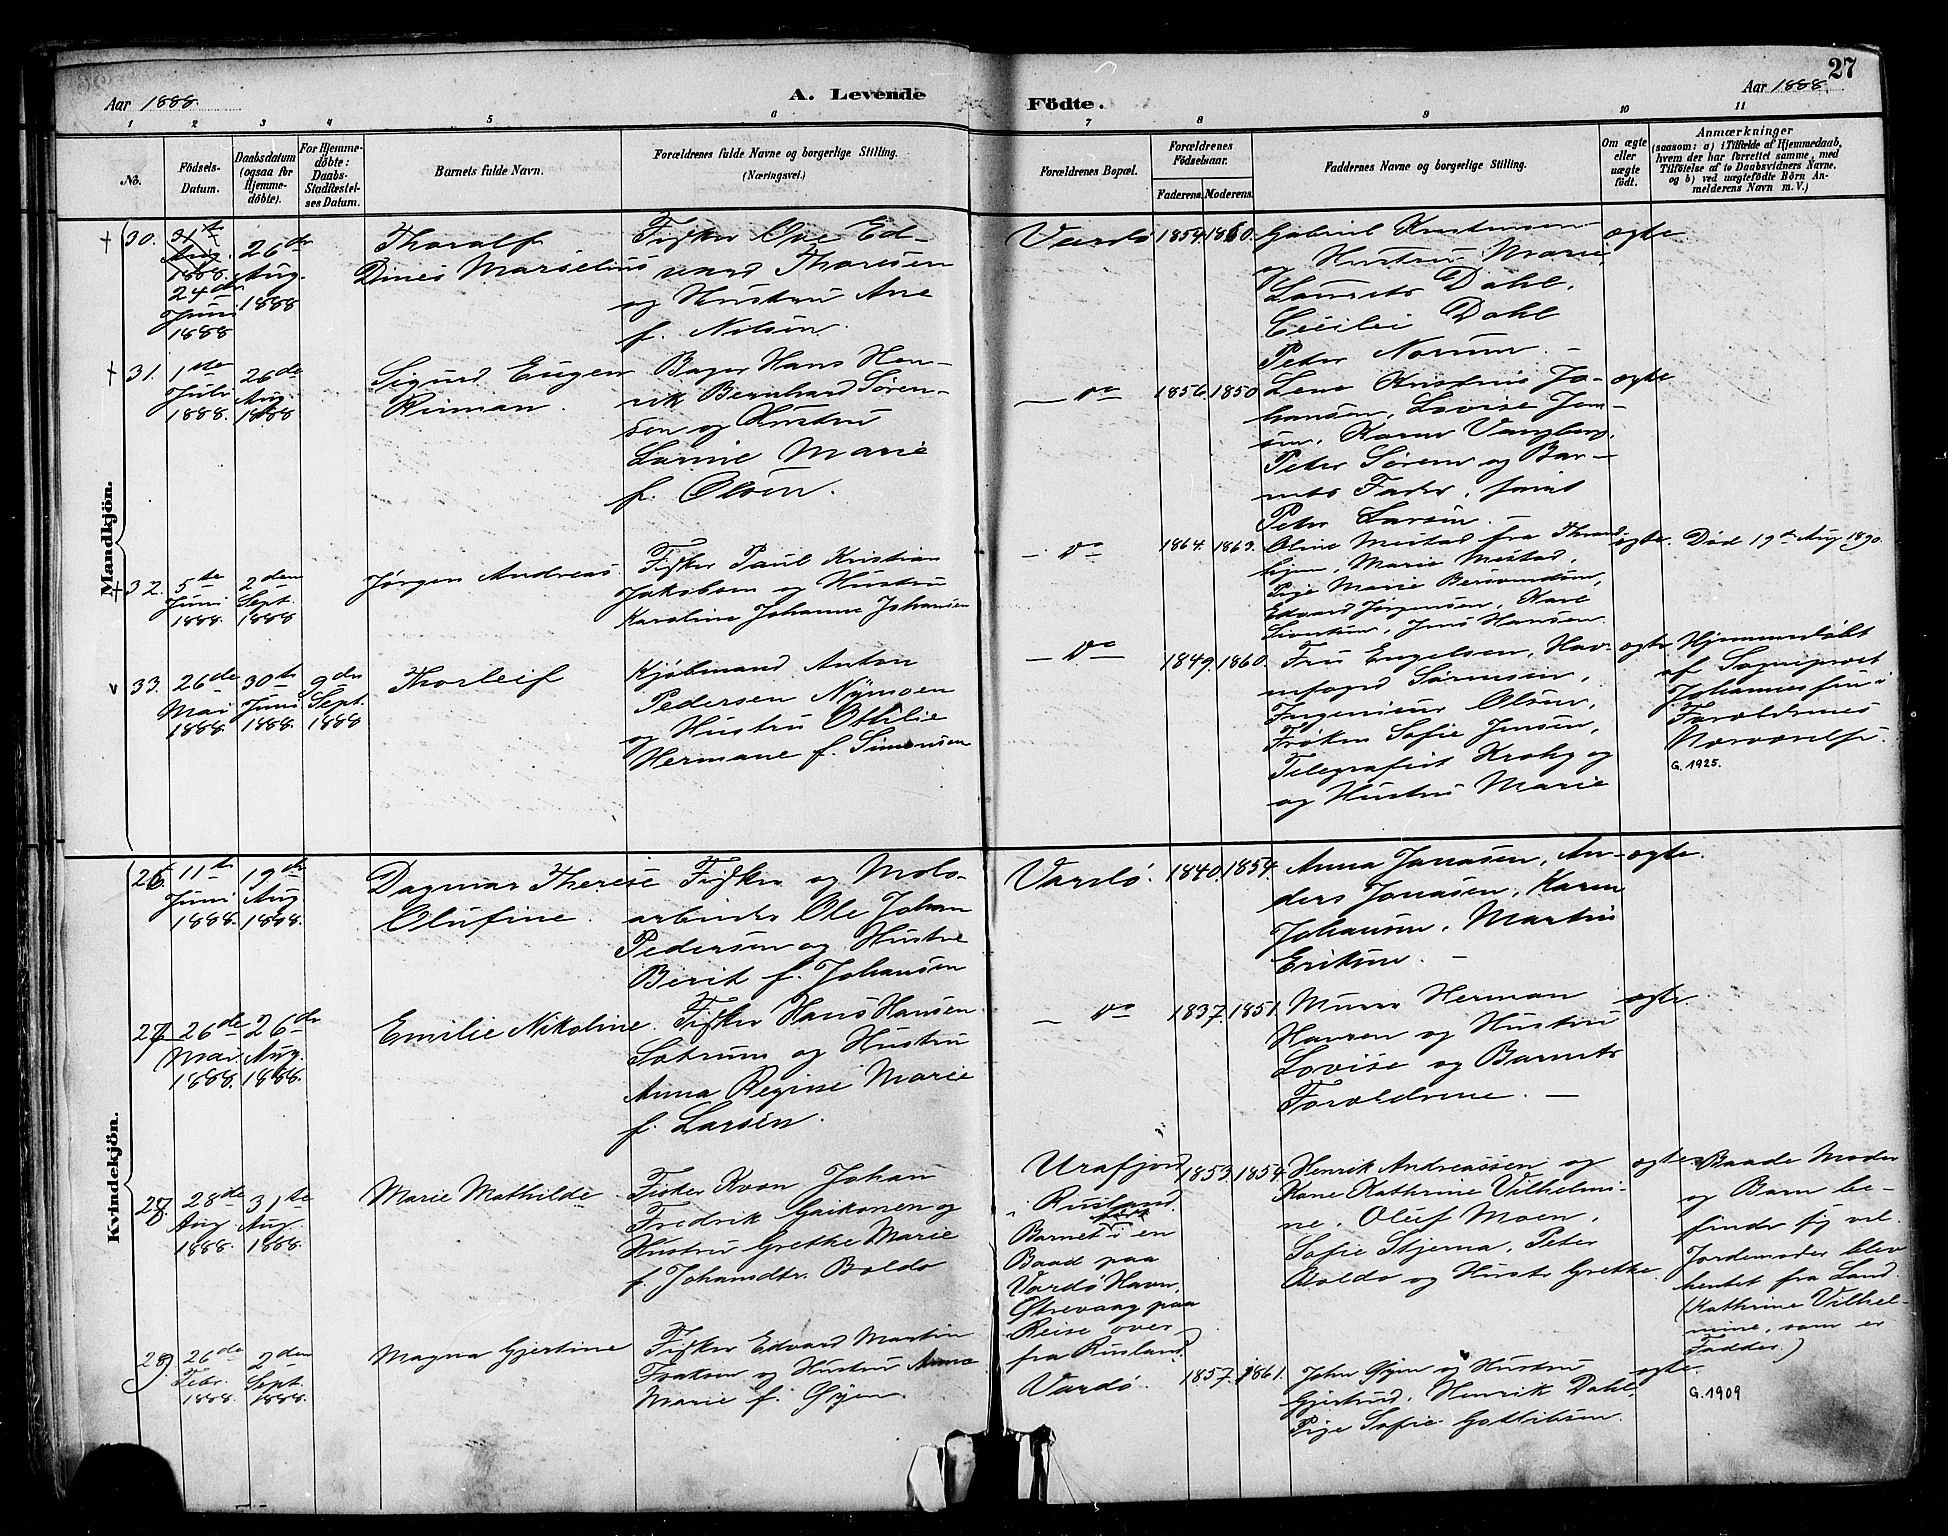 27
Aar 1888.
A. Levende
Födte.
Aar 1888.
1 2 3 4 5 6 7 8 9 10 11
No.
Födsels-
Datum.
Daabsdatum
(ogsaa for
Hjemme-
döbte).
For Hjemme-
döbte:
Daabs-
Stadfæstel-
ses Datum.
Barnets fulde Navn.
Forældrenes fulde Navne og borgerlige Stilling.
(Næringsvei.)
Forældrenes Bopæl.
Forældrenes
Födselsaar.
Faderens. Moderens.
Faddernes Navne og borgerlige Stilling.
Om ægte
eller
uægte
födt.
Anmærkninger
(saasom: a) i Tilfælde af Hjemmedaab,
hvem der har forrettet samme, med
Tilföielse af to Daabsvidners Navne,
og b) ved uægtefödte Börn An-
melderens Navn m. V.)
Mandkjön.
30.
31te
Aug.
1888.
24de
Juni
1888
26de
Aug.
1888
Thoralf
Dines Marselius
Fisker Ove Ed-
vard Thoresen
og Hustru Ane
f. Nilsen.
Vardö
1854. 1860.
Gabriel Kristensen
og Hustru Marie,
Laurits Dahl,
Cecilie Dahl
Peter Norum. —
ægte
31.
1ste
Juli
1888.
26de
Aug.
1888
Sigurd Eugen
Rinman.
Bager Hans Hen-
rik Bernhard Sören-
sen og Hustru
Larine Marie
f. Olsen.
— do —
1856. 1850
Lene Kristine Jo-
hansen, Lovise Jen-
sen, Karen Vangberg,
Peter Sörens og Bar-
nets Fader, samt
Peter Larsen. —
ægte
32.
5te
Juni
1888.
2den
Sept.
1888
Jörgen Andreas
Fisker Paul Kristian
Jakobsen og Hustru
Karoline Johanne Johansen
— do —
1864. 1863.
Oline Mestad fra Thrond
hjem, Marie Mestad,
Pige Marie Bersvendsen,
Edvard Jörgensen, Karl
Sivertsen, Jens Hansen
ægte.
Död 19de Aug 1890.
33.
26de
Mai
1888.
30te
Juni
1888.
9de
Sept.
1888
Thorleif
Kjöbmand Anton
Pedersen Nymoen
og Hustru Ottilie
Hermane f. Simonsen
— do —
1849. 1860.
Fru Engelsen, Hav-
nefoged Sörensen,
Ingeniør Olsen,
Fröken Sofie Jensen,
Telegrafist Krohg og
og Hustru Marie
ægte
Hjemmedöbt
af Sogneprest
Johannessen i
Forældrenes
Nærværelse.
G. 1925.
Kvindekjön.
26.
11te
Juni
1888.
19de
Aug.
1888.
Dagmar Therese
Olufine.
Fisker og Molo-
arbeider Ole Johan
Pedersen og Hustru
Berit f. Johansen
Vardö.
1840. 1854.
Anna Jonasen, An-
ders Jonasen, Karen
Johansen, Martin
Eriksen. —
ægte.
27.
26de
Mai
1888.
26de
Aug.
1888.
Emilie Nikoline.
Fisker Hans Hansen
Sætrum og Hustru
Anna Regine Marie
f. Larsen.
— do —
1837. 1851.
Murer Herman
Hansen og Hustru
Lovise og Barnets
Forældrene. —
ægte
28.
28de
Aug
1888.
31te
Aug.
1888.
Marie Mathilde
Fisker Kvæn Johan
Fredrik Gaikonen og
Hustru Grethe Marie
f. Johansdtr. Boldo
Urafjord
i Rusland.
Barnet född i en
Baad paa
Vardö Havn,
Østrevaag paa
Reise over
fra Rusland.
1853. 1854.
Henrik Andreassen og
Kone Kathrine Vilhelmi-
ne, Oluf Moen,
Sofie Stjerna, Peter
Boldo og Hustr Grethe
ægte
Baade Moder
og Barn be-
finder sig vel.
Jordemoder blev
hentet fra Land.
(Kathrine Vilhel-
mine, som er
Fadder.)
29.
26de
Febr.
1888.
2den
Sept.
1888.
Magna Gjertine
Fisker Edvard Martin
Isaksen og Hustru Anna
Marie f. Gjen.
Vardö.
1857. 1861.
John Gjen og Hustru
Gjertrud, Henrik Dahl,
Pige Sofie Gottlibsen.
ægte.
G. 1909